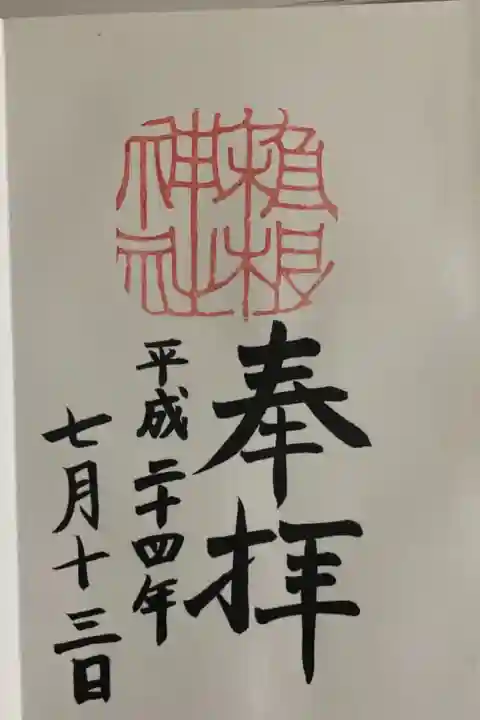 植根
神社
奉拝
平成二十四年
七月十三日